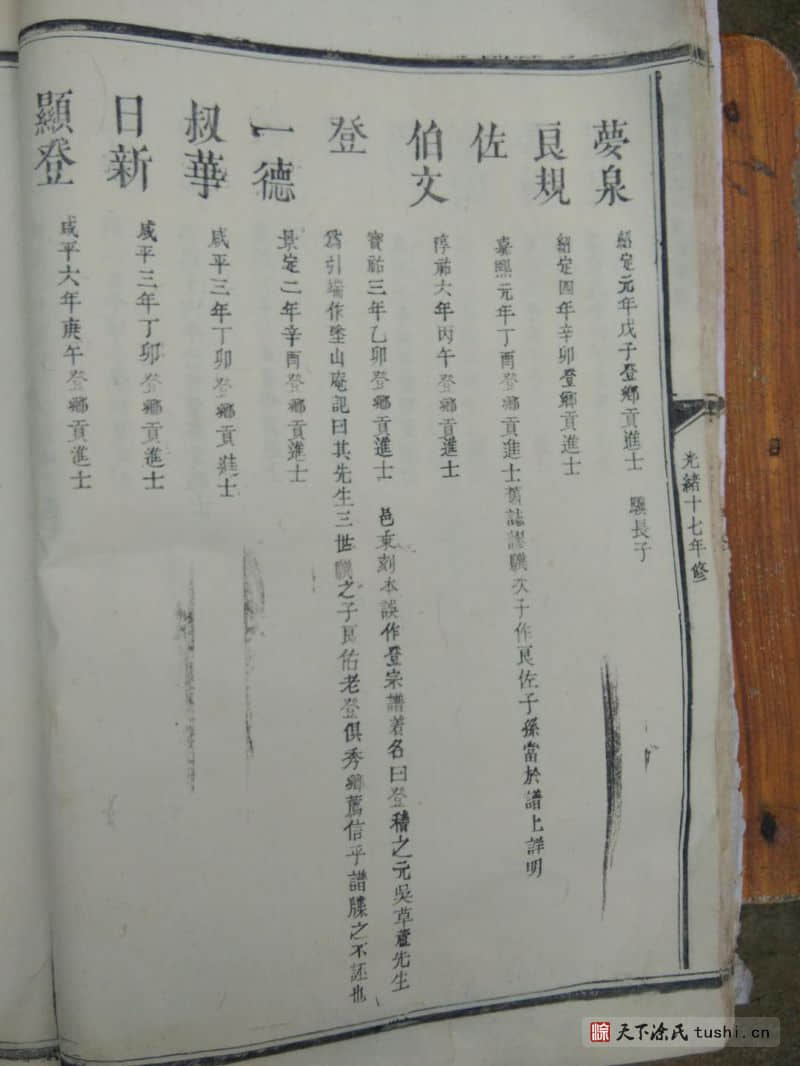 光緒十七年修
夢泉 紹定元年戊子登鄉貢進士 驥長子
良規 紹定四年辛卯登鄉貢進士
佐 嘉熙元年丁酉登鄉貢進士舊誌謬驥次子作良佐子孫當於譜上詳明
伯文 淳祐六年丙午登鄉貢進士
登 寶祐三年乙卯登鄉貢進士 邑乘刻本誤作登宗譜着名曰登稽之元吳草蘆先生
為引端作塗山庵記曰其先生三世驥之子良佑老登俱秀鄉薦信乎譜牒之不誣也
一德 景定二年辛酉登鄉貢進士
叔華 咸平三年丁卯登鄉貢進士
日新 咸平三年丁卯登鄉貢進士
顯登 咸平六年庚午登鄉貢進士
天下涂氏 tushi.cn